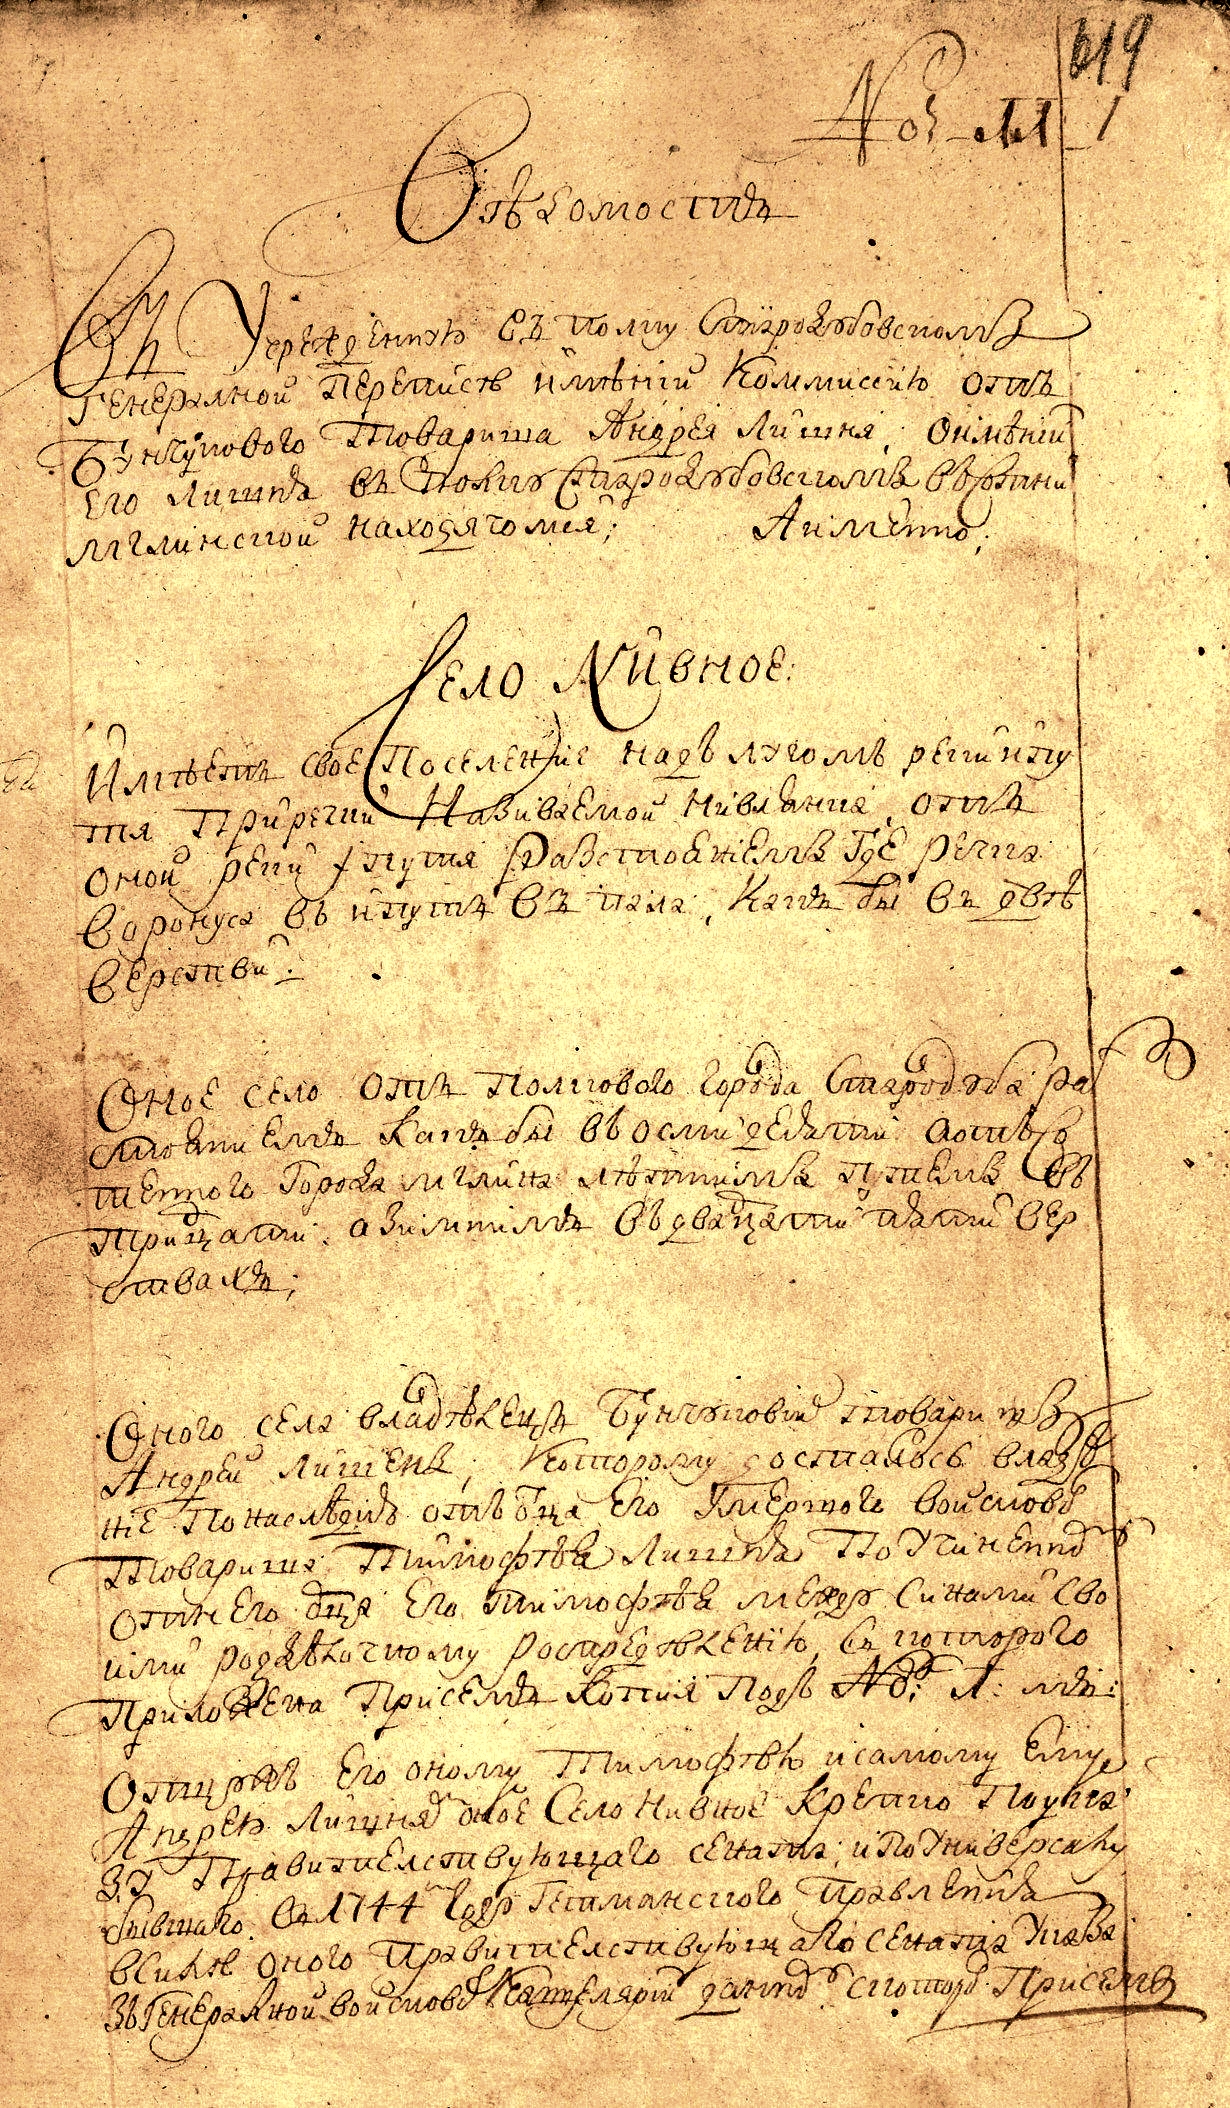 619
№ 11 1
Вѣдомостъ
Въ Учрежденную въ полку Стародубовскомъ
Генералной Переписѣ имѣній Коммисію отъ
Бунчукового Товариша Андрея Лишня, о имѣнии
Его Лишня въ Полку Стародубовскомъ в Сотни
Мглинской находячомся; А имѣнно;
Село Нивное:
Имѣетъ своё Поселеніе надъ лугомъ реки ипу
тя При речки Називаемой Нивлянка, отъ
оной реки ипутя Разстояніемъ Где Речка
Воронуса въ ипутъ въ пала, Какъ бы въ двѣ
верстви.
Оное село отъ Полкового города Стародуба ра
стояниемъ Какъ бы въ осмидесяти а отъ Со
тенного Города мглина лѣтнимъ путемъ въ
тридцати, а зимнимъ въ двадцати пяти вер
ствахъ;
Оного села владѣлецъ Бунчуковій товаришъ
Андрей Лишень, Которому досталось владѣ
ніе По наслѣдию отъ отца Его Умершого войсковог
Товариша Тимофѣя Лишня По Учиненном
отъ Его отца Его Тимофѣя между Синами Сво
ими раздѣлочному роспредѣленію, съ которого
Приложена При семъ Копия Подъ № 1: мъ:
Отцу жъ Его оному Тимофѣю и самому Ему
Андрею Лишню оное Село Нивное Крепко По указ
зу Правителствующаго сената, и По Универсалу
бывшаго въ 1744 году Гетманского Правления
в силѣ оного Правителствующаго Сената Указа
Зъ Генералной войсковой Канцелярій данном с котор При семъ